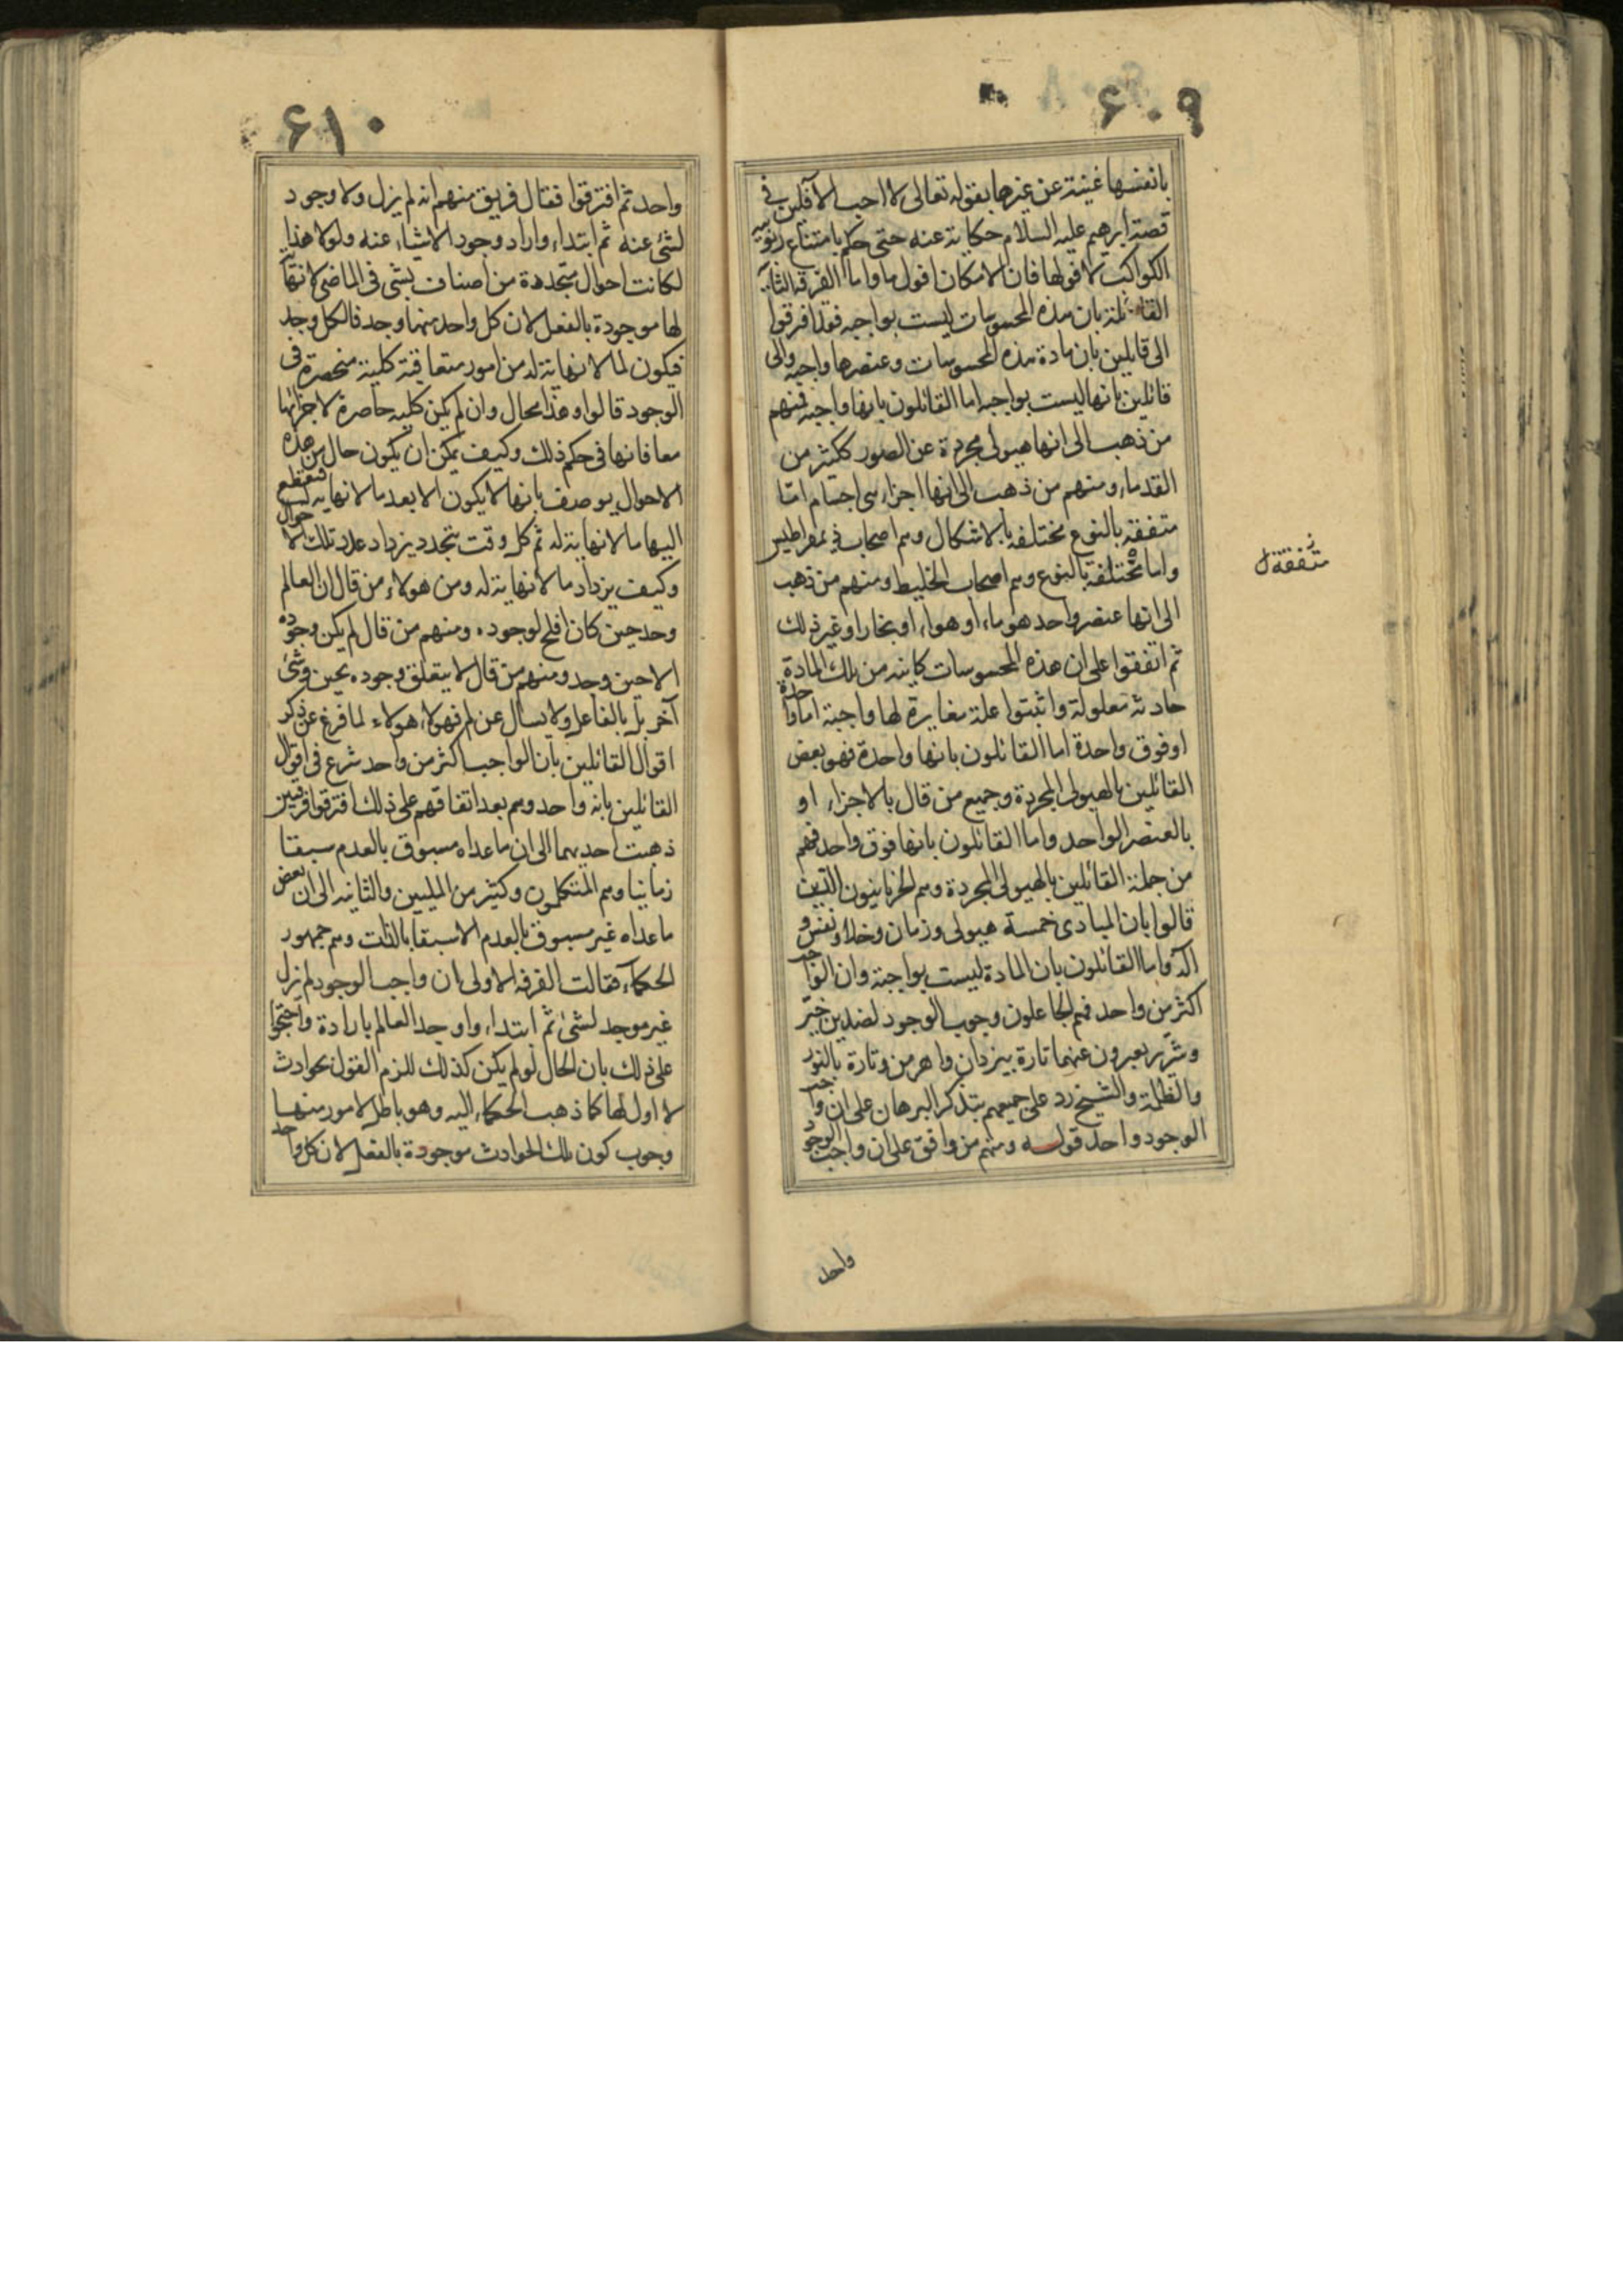 ٦٠٩
بانفسها غنية عن غيرها بقوله تعالى لا احب الآفلين في
قصة ابرهيم عليه السلام حكاية عنه حتى حكم بامتناع ربوبية
الكواكب لافولها فان الامكان افول ما واما الفرقة الثانية
القائلة بان هذه المحسوسات ليست بواجبه فقد افترقوا
الى قايلين بان مادة هذه المحسوسات وعنصرها واجبه والى
قائلين بانها ليست بواجبه اما القائلون بانها واجبة فمنهم
من ذهب الى انها هيولى مجردة عن الصور ككثير من
القدماء ومنهم من ذهب الى انها اجزاء هي اجسام اما
متفقة بالنوع مختلفة بالاشكال وهم اصحاب ذيمقراطيس
واما مختلفة بالنوع وهم اصحاب الخليط ومنهم من ذهب
الى انها عنصر واحد هو ماء او هواء او بخار او غير ذلك
ثم اتفقوا على ان هذه المحسوسات كاينه من تلك المادة
حادثه معلولة واثبتوا علة مغايرة لها واجبة اما واحدة
او فوق واحدة اما القائلون بانها واحدة فهو بعض
القائلين بالهيولى المجردة وجميع من قال بالاجزاء او
بالعنصر الواحد واما القائلون بانها فوق واحد فهم
من جملة القائلين بالهيولى المجردة وهم الحرنانيون الذين
قالوا بان المبادى خمسة هيولى وزمان وخلاء ونفس و
اله واما القائلون بان المادة ليست بواجبة وان الواجب
اكثر من واحد فهم الجاعلون وجوب الوجود لضدين خير
وشر يعبرون عنهما تارة بيزدان واهرمن وتارة بالنور
والظلمة والشيخ رد على جميعهم بتذكر البرهان على ان واجب
الوجود واحد قوله ومنهم من وافق على ان واجب الوجود
واحد
متفقة ل
٦١٠
واحد ثم افترقوا فقال فريق منهم انه لم يزل ولا وجود
لشئ عنه ثم ابتداء واراد وجود الاشياء عنه ولولا هذا
لكانت احوال متجددة من اصناف شتى فى الماضى لا نهاية
لها موجودة بالفعل لان كل واحد منهما وجد فالكل وجد
فيكون لما لا نهاية له من امور متعاقبة كلية منحصرة فى
الوجود قالوا وهذا محال وان لم يكن كلية حاصرة لاجزائها
معا فانها فى حكم ذلك وكيف يمكن ان يكون حال من هذه
الاحوال يوصف بانها لا يكون الا بعد ما لا نهاية له فينقطع
اليها ما لا نهاية له ثم كل وقت يتجدد يزداد عدد تلك الاحوال
وكيف يزداد ما لا نهاية له ومن هولاء من قال ان العالم
وجد حين كان اصلح لوجوده ومنهم من قال لم يكن وجوده
الا حين وجد ومنهم من قال لا يتعلق وجوده بحين وشئ
آخر بل بالفاعل ولا يسال عن لم فهولاء هولاء لما فرغ عن ذكر
اقوال القائلين بان الواجب اكثر من واحد شرع فى اقوال
القائلين بانه واحد وهم بعد اتفاقهم على ذلك افترقوا فرقتين
ذهبت احديهما الى ان ما عداه مسبوق بالعدم سبقا
زمانيا وهم المتكلمون وكثير من المليين والثانيه الى ان بعض
ما عداه غير مسبوق بالعدم الا سبقا بالذات وهم جمهور
الحكماء فقالت الفرقه الاولى بان واجب الوجود لم يزل
غير موجد لشئ ثم ابتداء واوجد العالم بارادة واحتجوا
على ذلك بان الحال لو لم يكن كذلك للزم القول بحوادث
لا اول لها كما ذهب الحكماء اليه وهو باطل لامور منها
وجوب كون تلك الحوادث موجودة بالفعل لان كل واحد